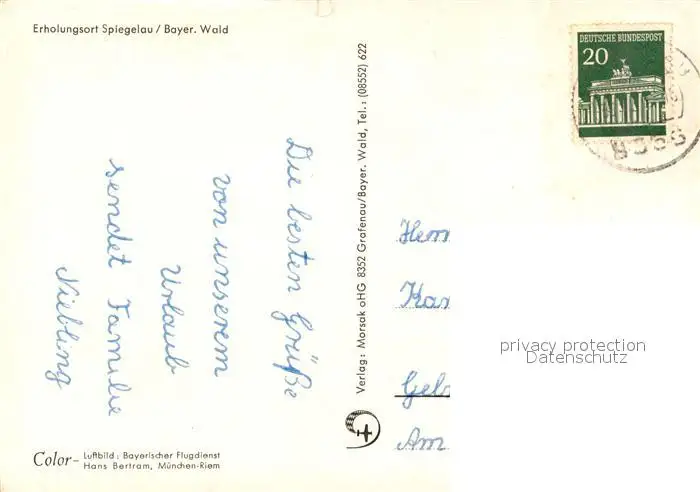 Erholungsort Spiegelau / Bayer. Wald
Die besten Grüße
von unserem
Urlaub
sendet Familie
Niebling
Color- Luftbild: Bayerischer Flugdienst
Hans Bertram, München-Riem
Verlag: Morsak oHG 8352 Grafenau/Bayer. Wald, Tel.: (08552) 622
DEUTSCHE BUNDESPOST
20
Herrn
Am
privacy protection
Datenschutz